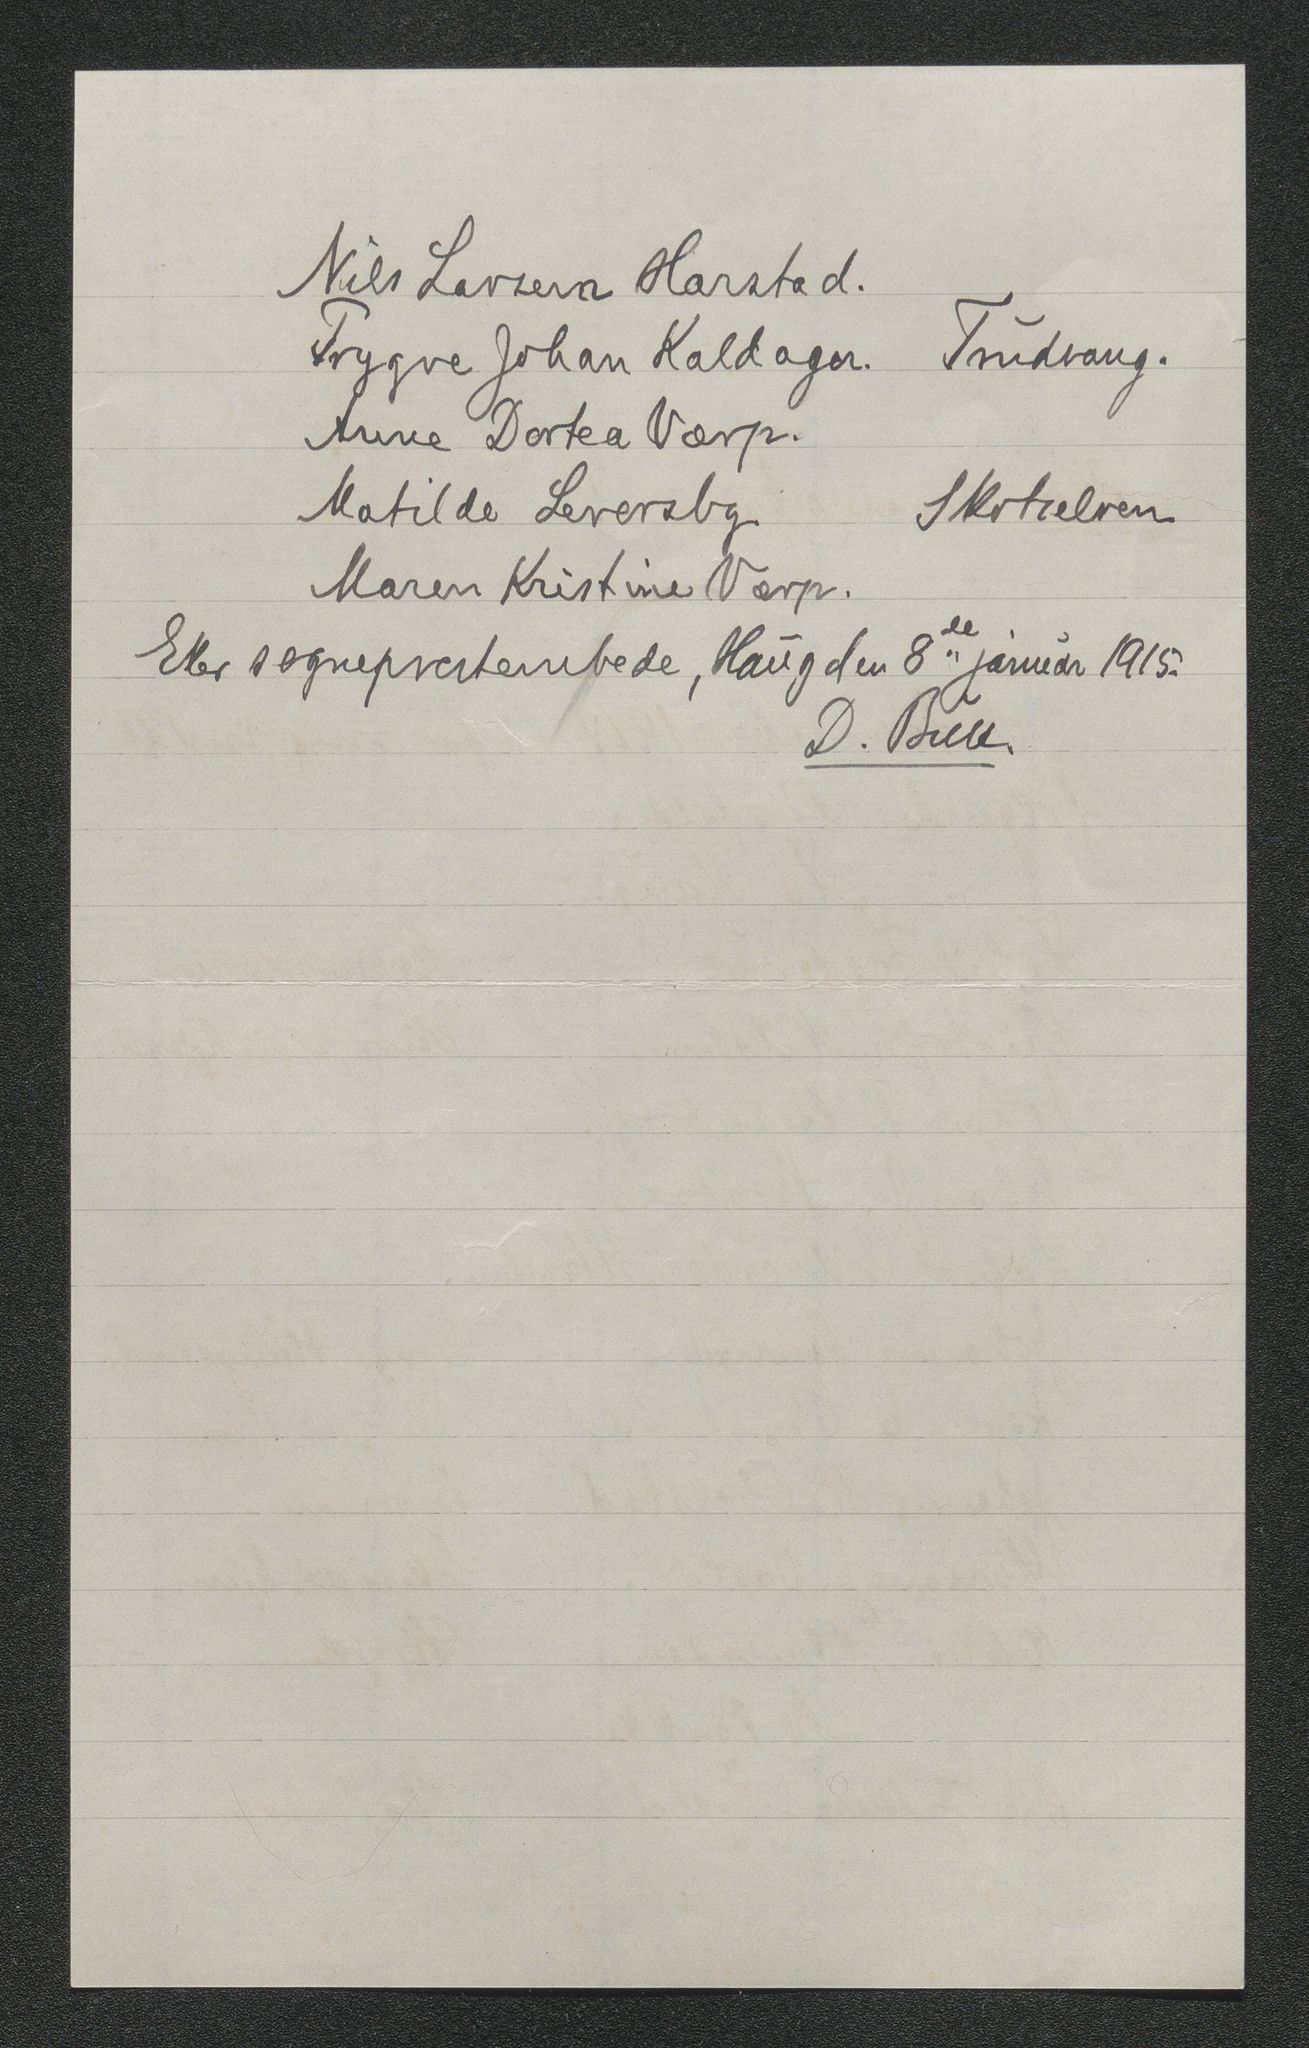 Nils Larsen Harstad.
Trygve Johan Kaldager. Trudvang.
Anne Dortea Værp.
Matilde Leversby. Skotselven
Maren Kristine Værp.
Eker sogneprestembede, Haug den 8de januar 1915.
D. Bull.